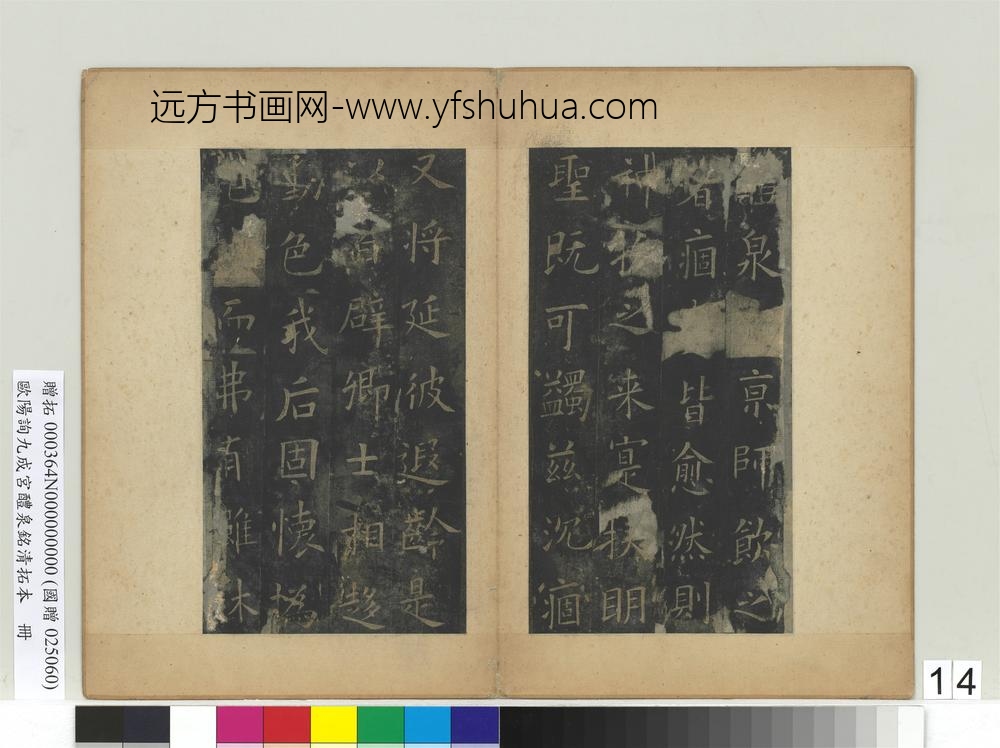 远方书画网-www.yfshuhua.com
醴泉京師飲之
者痼皆愈然則
神物之来寔扶明
聖既可蠲兹沉痼
又将延彼遐齡是
以百辟卿士相趍
動色我后固懷撝
而弗有雖休
贈拓 000364N000000000 (國贈 025060)
歐陽詢九成宮醴泉銘清拓本 冊
14